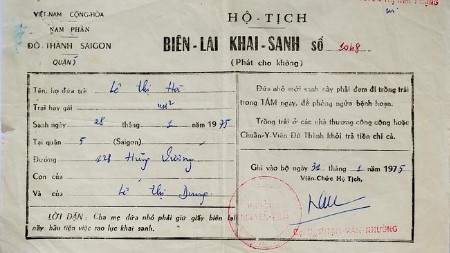 VIỆT-NAM CỘNG-HÒA
NAM PHẦN
ĐÔ-THÀNH SAIGON
QUẬN
HỘ-TỊCH
BIÊN-LAI KHAI-SANH SỐ 1068
(Phát cho không)
Tên, họ đứa trẻ Lê Thị Hà
Trai hay gái nữ
Sanh ngày 28 tháng 1 năm 1975
Tại quận 5 (Saigon)
Đường 128 Hùng Vương
Con của
Và của Lê Thị Dung
LỜI DẶN: Cha mẹ đứa nhỏ phải giữ giấy biên lai
này hầu tiện việc sao lục khai sanh.
Đứa nhỏ mới sanh này phải đem đi trồng trái
trong TÁM ngày, để phòng ngừa bệnh hoạn.
Trồng trái ở các nhà thương công cộng hoặc
Chuẩn-Y-Viên Đô Thành khỏi trả tiền chi cả.
Ghi vào bộ ngày 31 tháng 1 năm 1975
Viên-Chức Hộ Tịch,
PHẠM-VĂN-NHƯỜNG